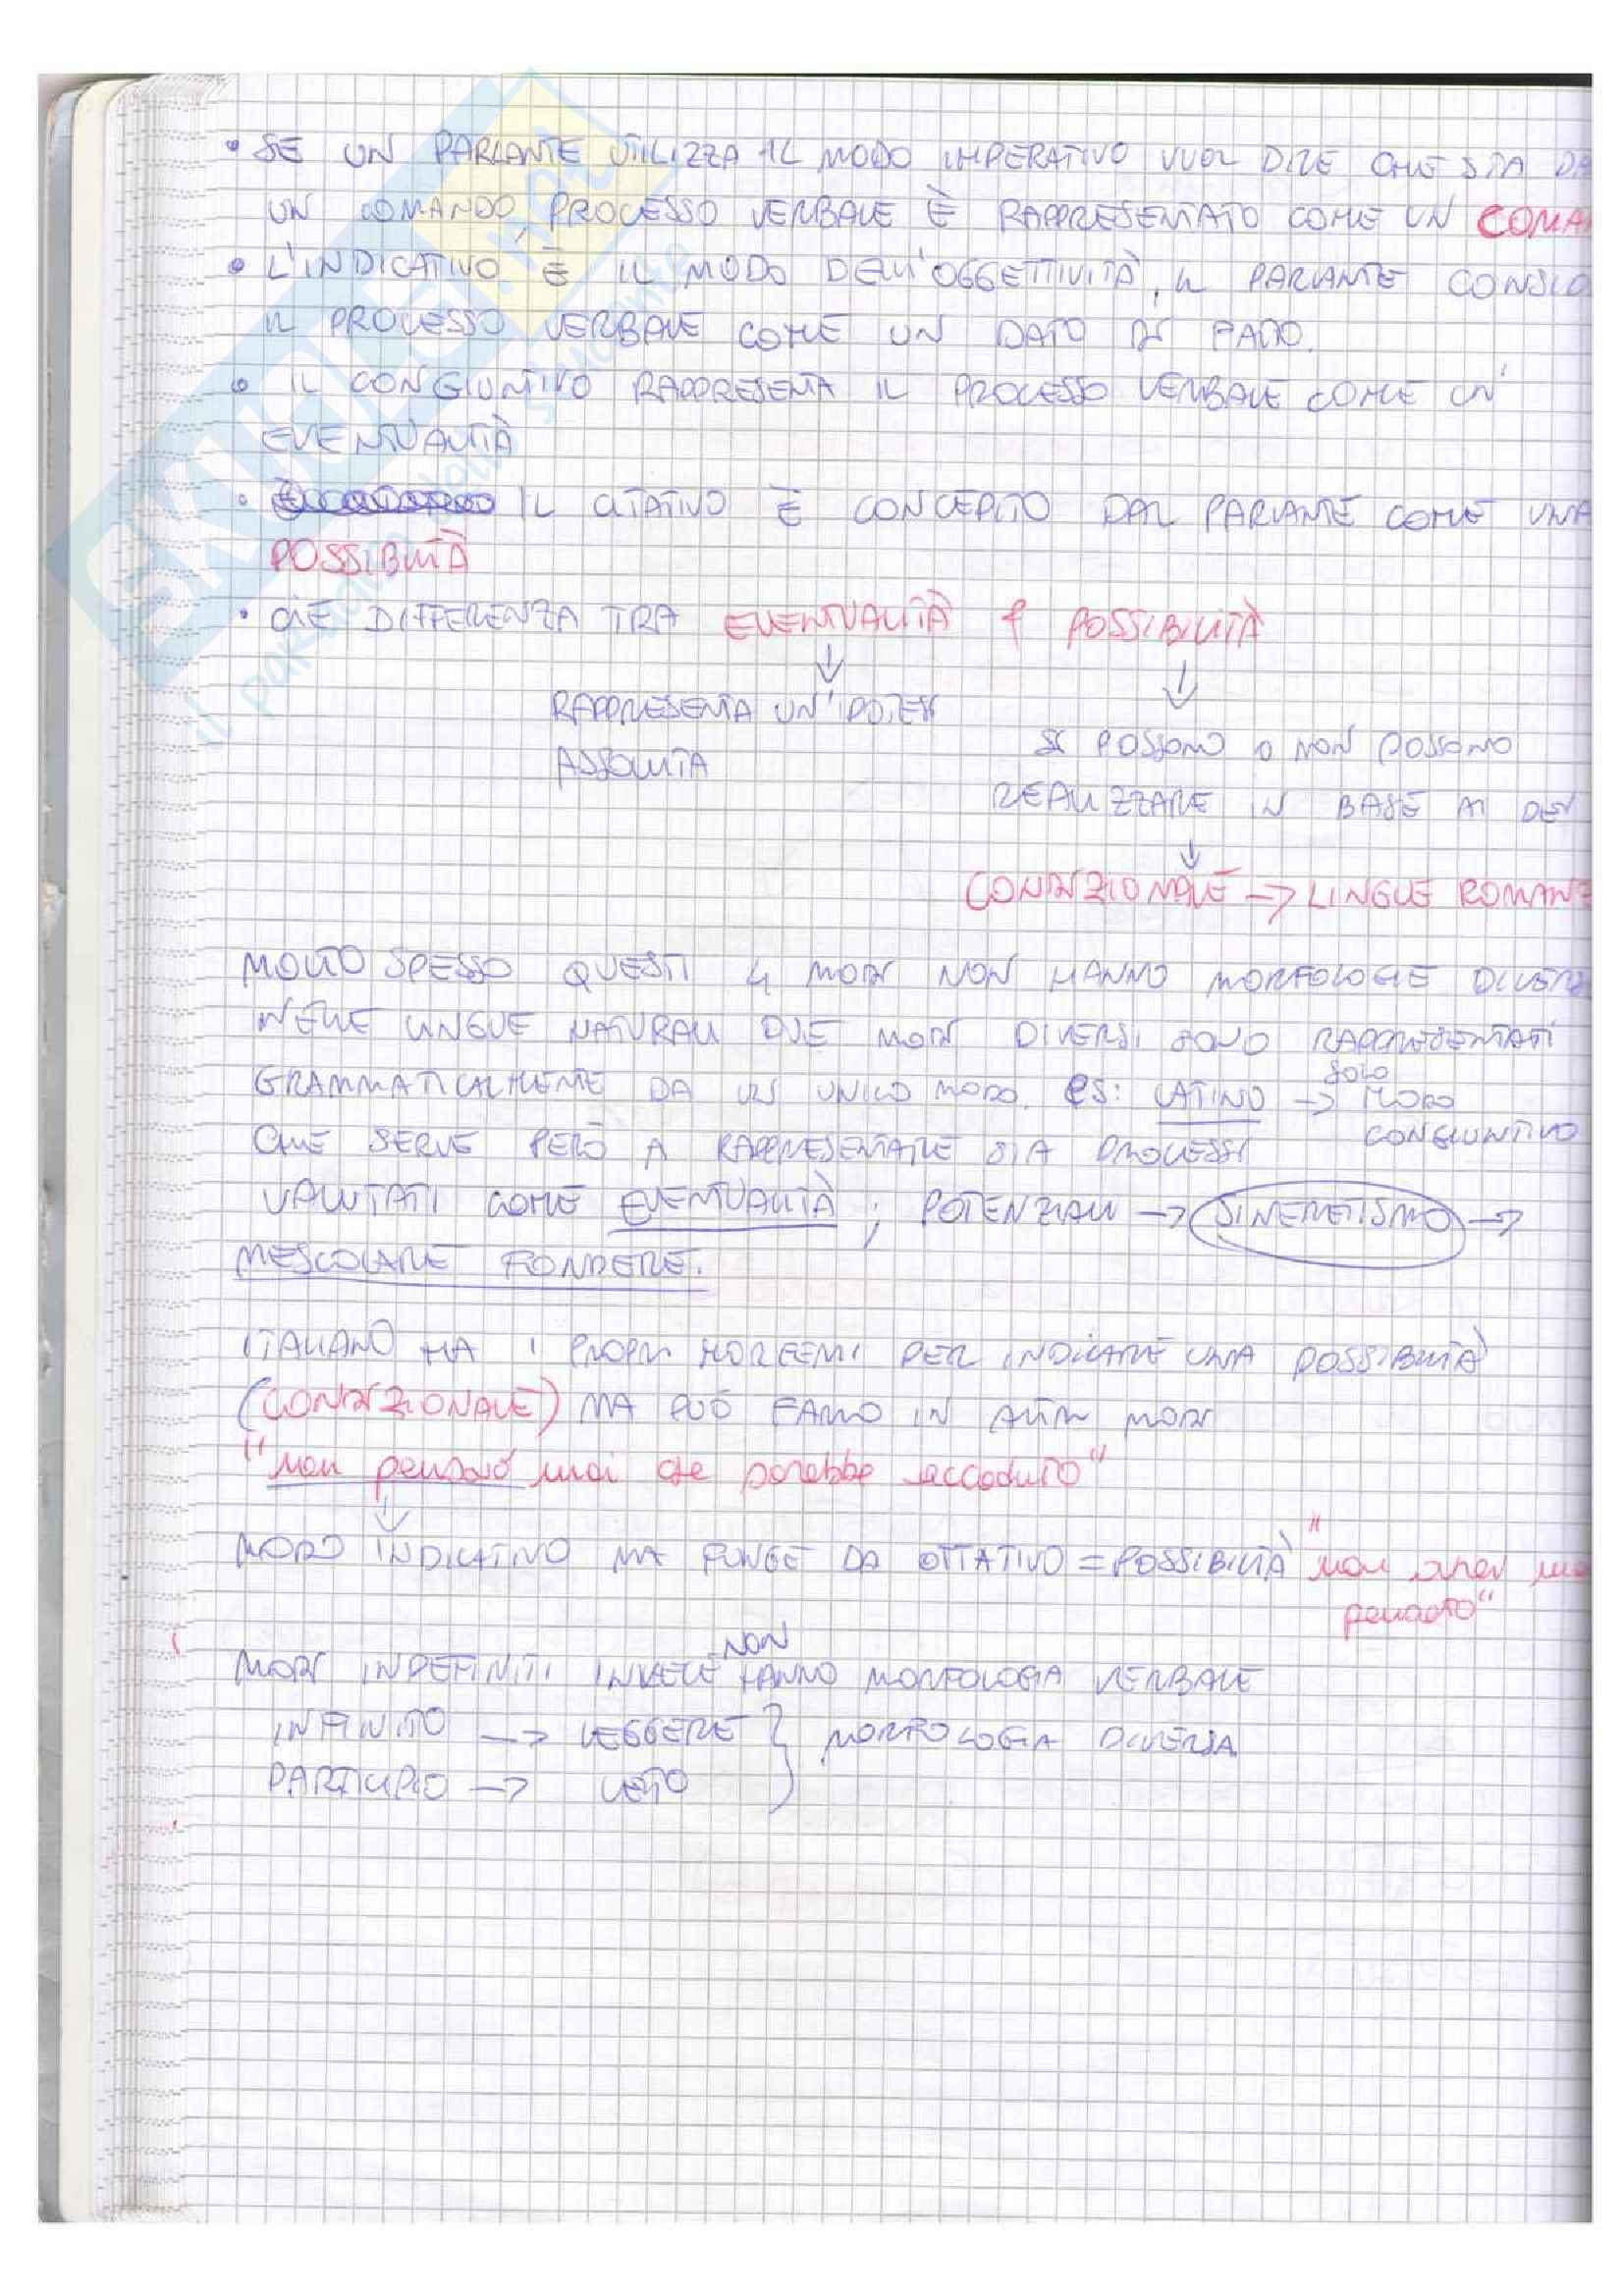 • SE UN PARLANTE UTILIZZA IL MODO IMPERATIVO VUOL DIRE CHE STA DA
UN COMANDO, PROCESSO VERBALE È RAPPRESENTATO COME UN COMA
• L'INDICATIVO È IL MODO DELL'OGGETTIVITÀ, IL PARLANTE CONSID
IL PROCESSO VERBALE COME UN DATO DI FATTO.
• IL CONGIUNTIVO RAPPRESENTA IL PROCESSO VERBALE COME UN'
EVENTUALITÀ
• IL OTATIVO È CONCEPITO DAL PARLANTE COME UNA
POSSIBILITÀ
• CHE DIFFERENZA TRA EVENTUALITÀ E POSSIBILITÀ
↓ ↓
RAPPRESENTA UN'IPOTESI
ASSOLUTA
SI POSSONO O NON POSSONO
REALIZZARE IN BASE AI DEI
↓
CONDIZIONALE → LINGUE ROMANZ
MOLTO SPESSO QUESTI 4 MODI NON HANNO MORFOLOGIE DIVERSE
NELLE LINGUE NATURALI DUE MODI DIVERSI SONO RAPPRESENTATI
GRAMMATICALMENTE DA UN UNICO MODO. ES: LATINO → SOLO MODO
CONGIUNTIVO
CHE SERVE PERÒ A RAPPRESENTARE SIA PROCESSI
VALUTATI COME EVENTUALITÀ; POTENZIALI → SINCRETISMO →
MESCOLARE FONDERE.
ITALIANO HA I PROPRI MORFEMI PER INDICARE UNA POSSIBILITÀ
(CONDIZIONALE) MA PUÒ FARLO IN ALTRI MODI
"non pensavo mai che sarebbe accaduto"
↓
MODO INDICATIVO MA FUNGE DA OTTATIVO = POSSIBILITÀ "non avrei ma
pensato"
MODI INDEFINITI INVECE NON HANNO MORFOLOGIA VERBALE
INFINITO → LEGGERE } MORFOLOGIA DIVERSA
PARTICIPIO → LETO
SKUOLA
il paradiso dello studente